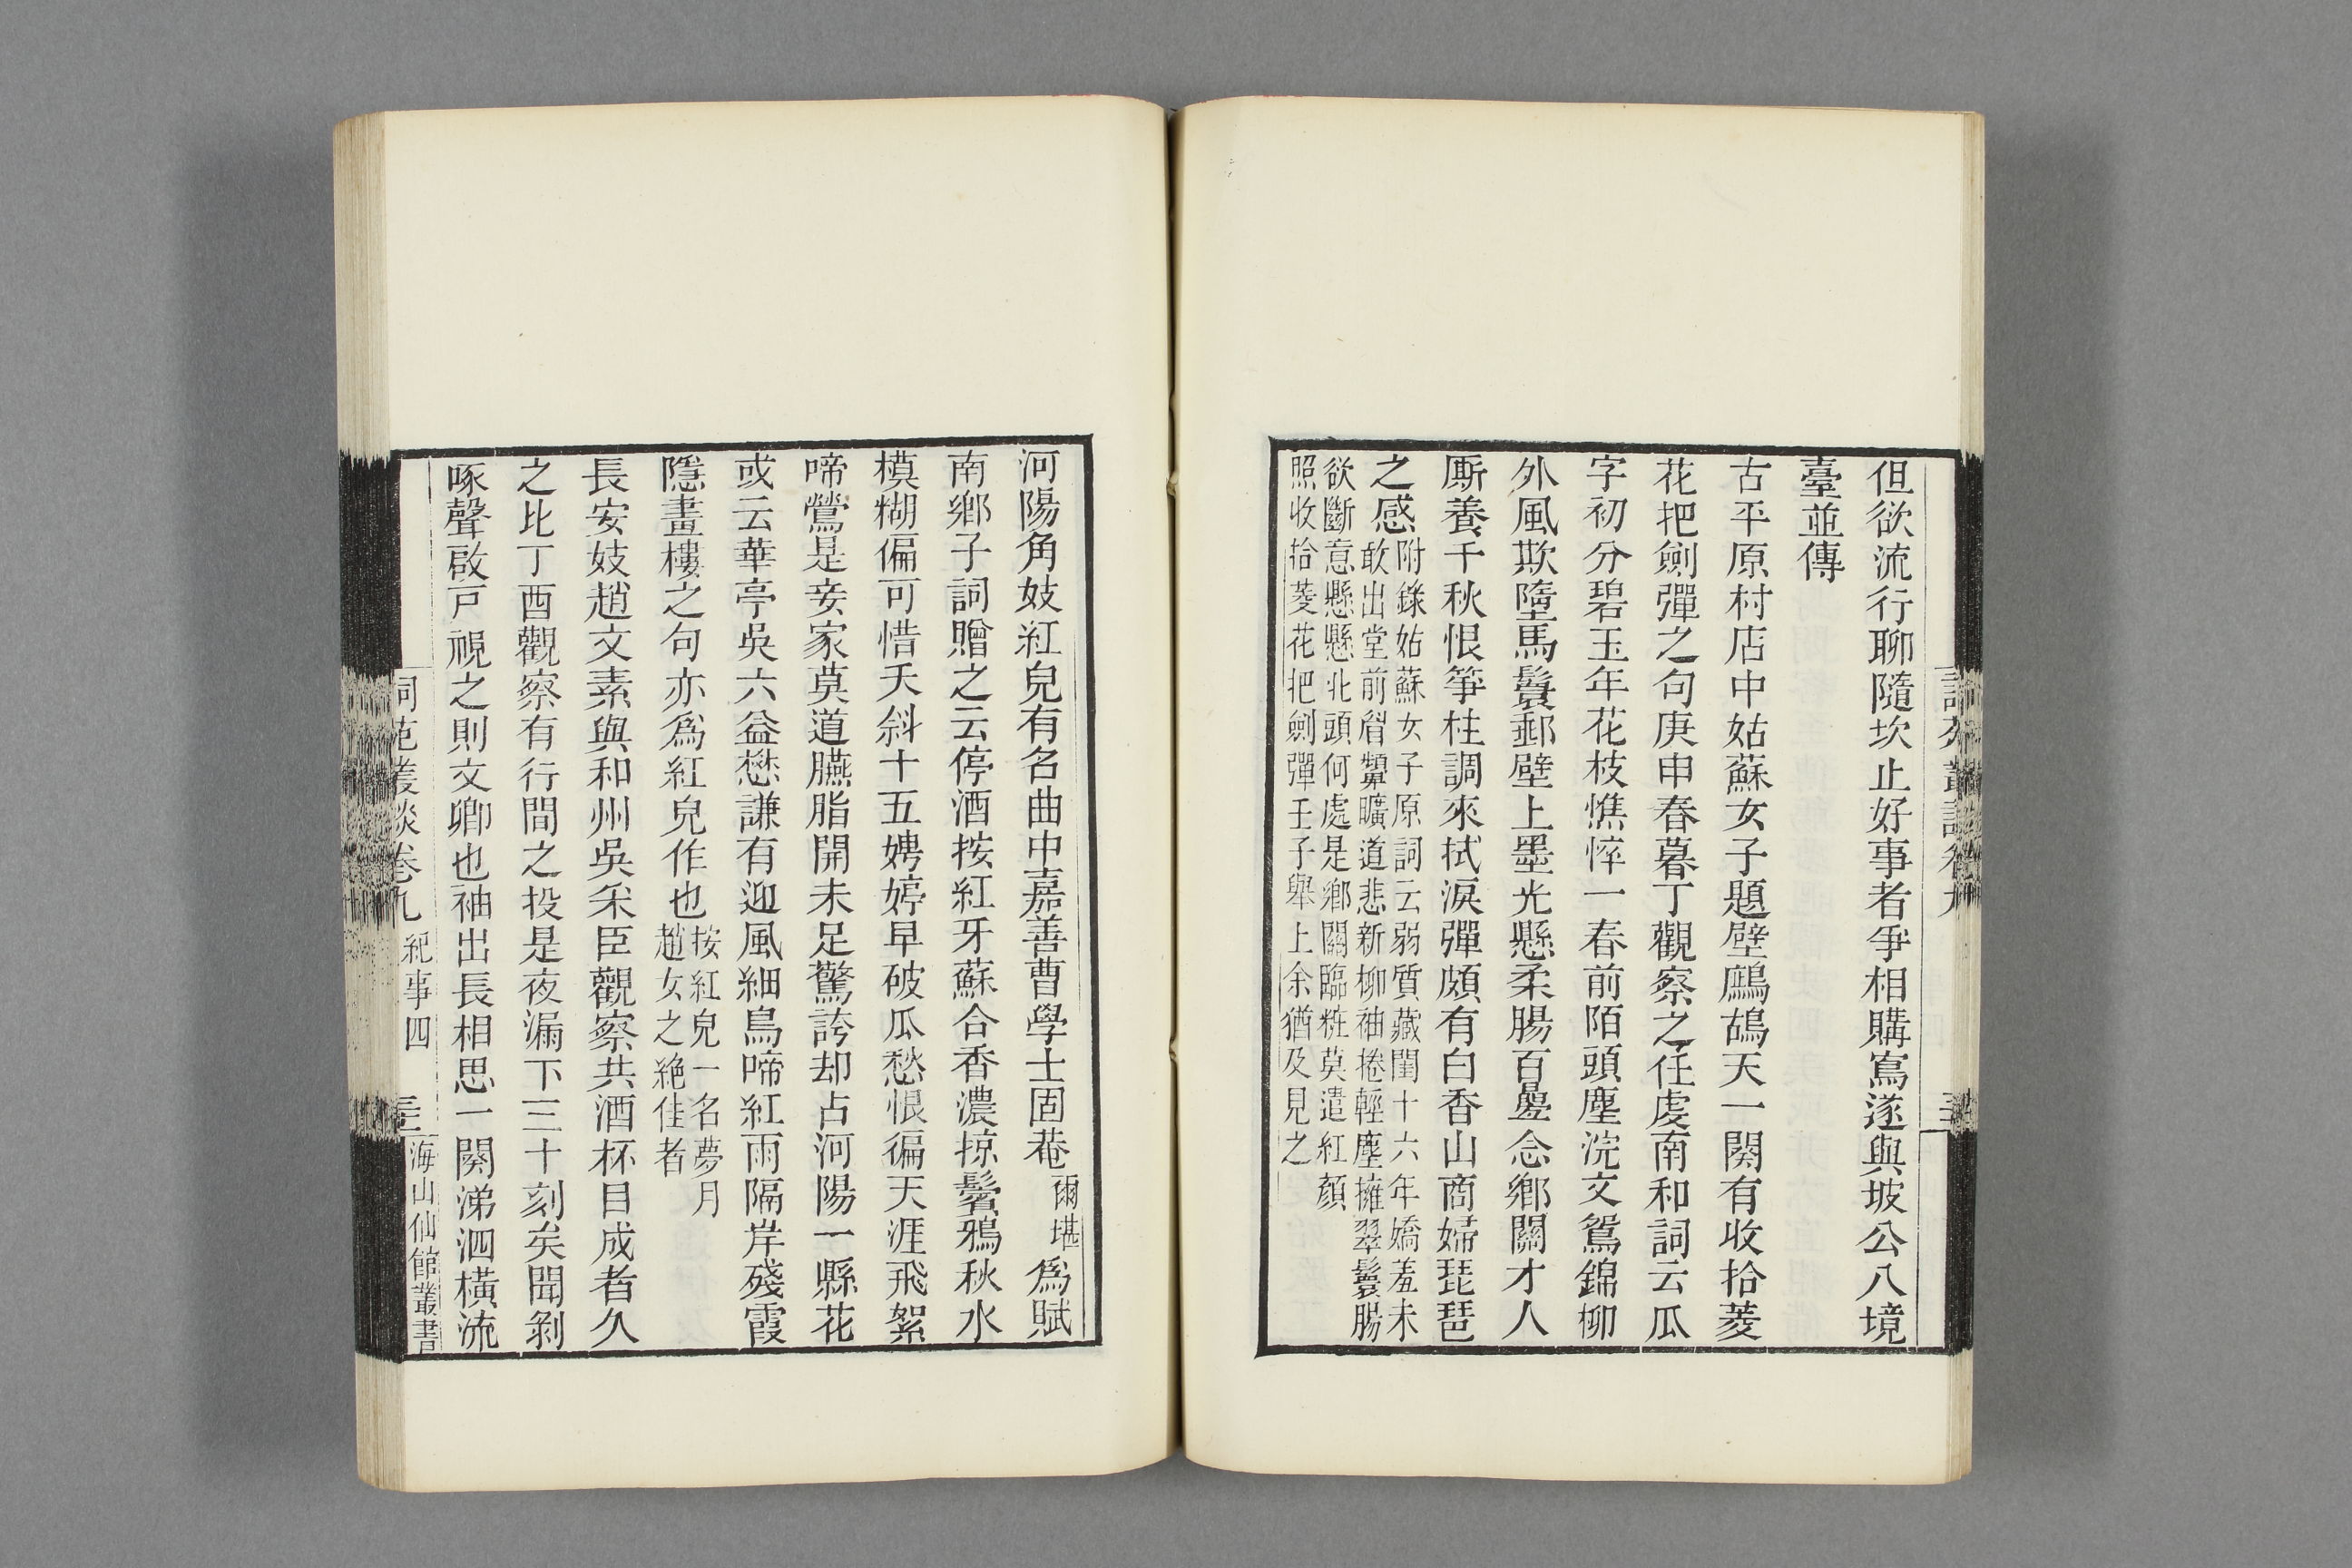 但欲流行聊隨坎止好事者爭相購寫遂與坡公八境
臺並傳
古平原村店中姑蘇女子題壁鷓鴣天一闋有收拾菱
花把劍彈之句庚申春暮丁觀察之任虔南和詞云瓜
字初分碧玉年花枝憔悴一春前陌頭塵浣文鴛錦柳
外風欺墮馬鬟郵壁上墨光懸柔腸百疊念鄉關才人
厮養千秋恨箏柱調來拭淚彈頗有白香山商婦琵琶
之感
附錄姑蘇女子原詞云弱質藏閨十六年嬌羞未
敢出堂前眉顰曠道悲新柳袖捲輕塵擁翠鬟腸
欲斷意懸懸北頭何處是鄉關臨粧莫遣紅顏
照收拾菱花把劍彈壬子舉上余猶及見之
河陽角妓紅兒有名曲中嘉善曹學士固菴爾堪為賦
南鄉子詞贈之云停酒按紅牙蘇合香濃掠鬢鴉秋水
模糊偏可惜夭斜十五娉婷早破瓜愁恨徧天涯飛絮
啼鶯是妾家莫道臙脂開未足驚誇却占河陽一縣花
或云華亭吳六益懋謙有迎風細鳥啼紅雨隔岸殘霞
隱畫樓之句亦為紅兒作也
按紅兒一名夢月
趙女之絶佳者
長安妓趙文素與和州吳釆臣觀察共酒杯目成者久
之比丁酉觀察有行間之投是夜漏下三十刻矣聞剝
啄聲啟戸視之則文卿也袖出長相思一闋涕泗橫流
詞苑叢談卷九
紀事四
海山仙館叢書